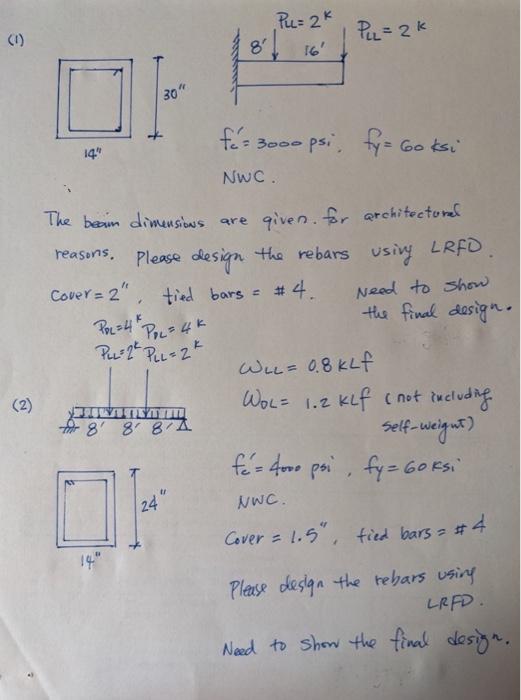 (1)
PLL = 2ᴷ
PLL = 2ᴷ
8' 16'
30"
14"
fc' = 3000 psi, fy = 60 ksi
NWC.
The beam dimensions are given. for architectural
reasons. Please design the rebars using LRFD.
Cover = 2", tied bars = #4. Need to show
the final design.
PDL=4ᴷ PDL=4ᴷ
PLL=2ᴷ PLL=2ᴷ
(2)
8' 8' 8'
WLL = 0.8 KLf
WDL = 1.2 KLf (not including
self-weight)
24"
14"
fc' = 4000 psi, fy = 60 Ksi
NWC.
Cover = 1.5", tied bars = #4
Please design the rebars using
LRFD.
Need to show the final design.